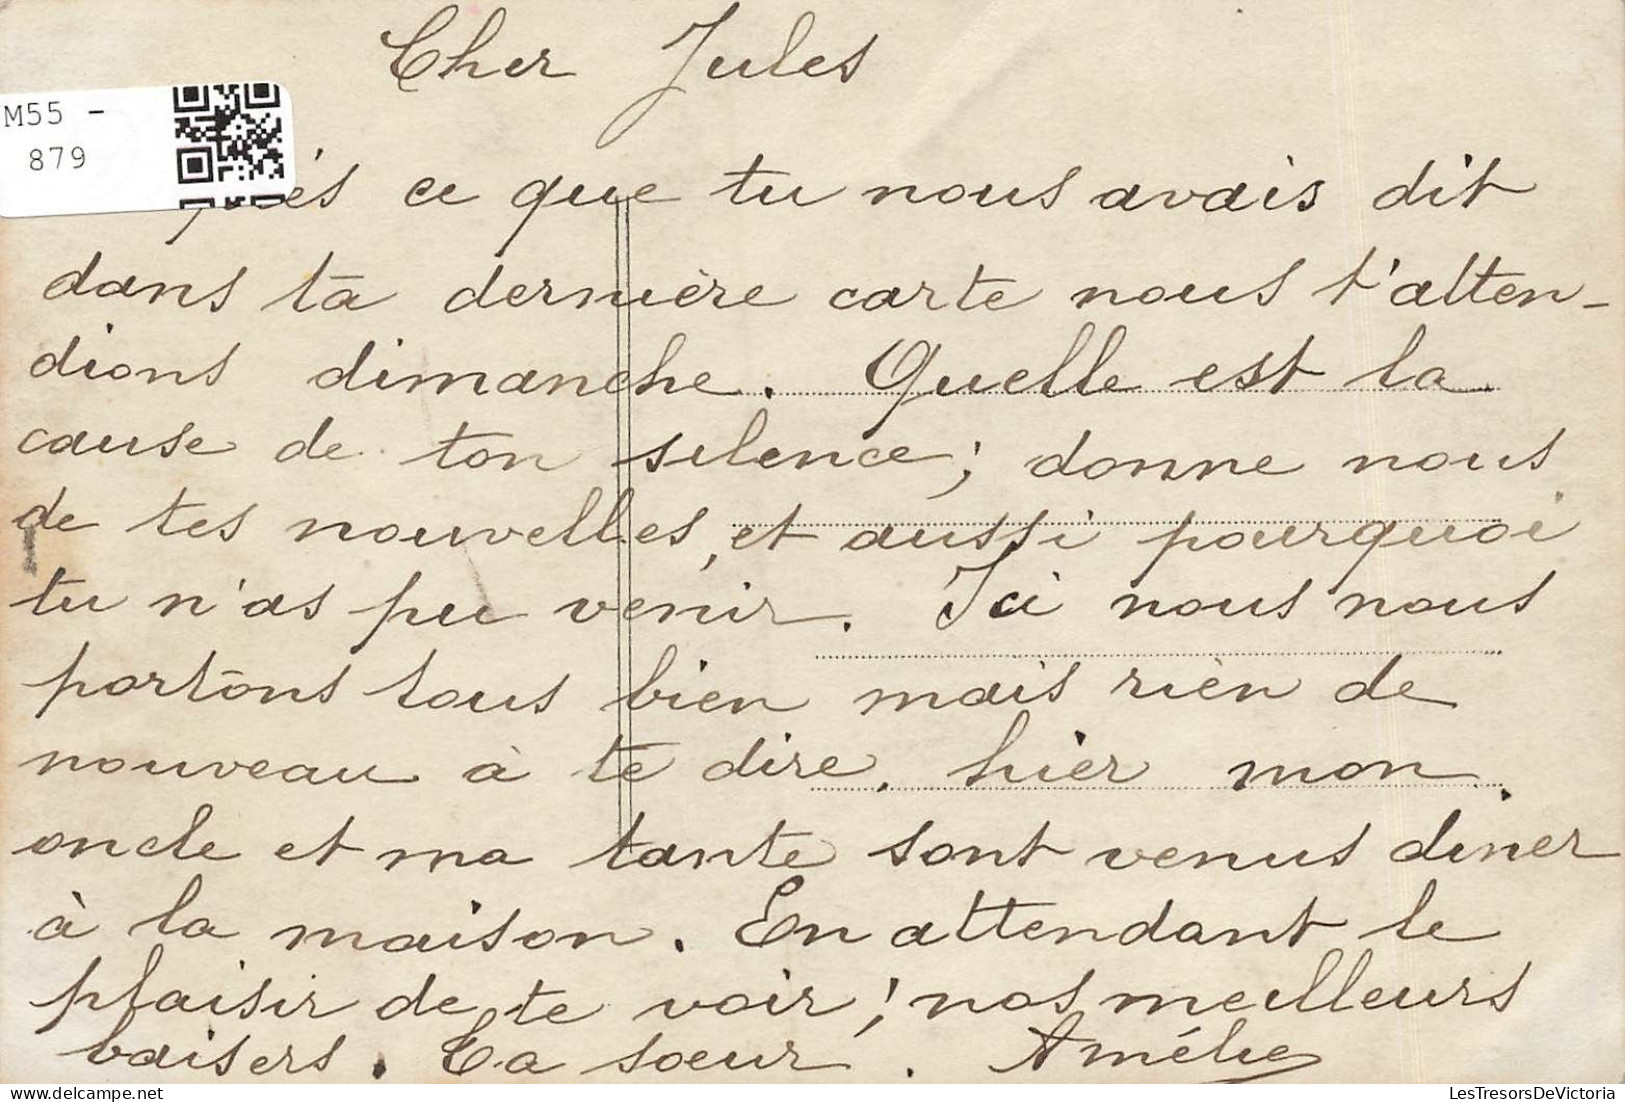 Cher Jules
M55 -
879
ce que tu nous avais dit
dans ta dernière carte nous t'atten-
dions dimanche. Quelle est la
cause de ton silence; donne nous
de tes nouvelles, et aussi pourquoi
tu n'as pu venir. Ici nous nous
portons tous bien mais rien de
nouveau à te dire, hier mon
oncle et ma tante sont venus diner
à la maison. En attendant le
plaisir de te voir; nos meilleurs
baisers. Ta soeur. Amélie
LesTresorsDeVictoria